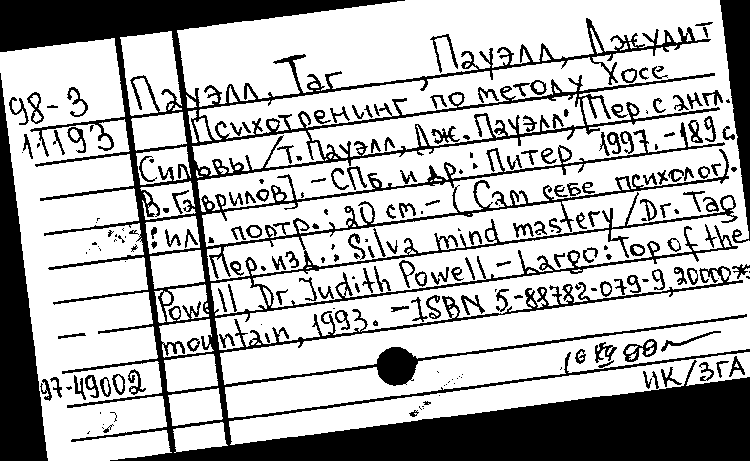 Пауэлл, Таг , Пауэлл, Джудит
98-3
11193
Психотренинг по методу Хосе
Сильвы / Т. Пауэлл, Дж. Пауэлл; [Пер. с англ.
В. Гаврилов]. - СПб. и др. : Питер, 1997. - 189 с.
: ил., портр.; 20 см. - (Сам себе психолог).
Пер. изд.: Silva mind mastery / Dr. Tag
Powell, Dr. Judith Powell. - Largo: Top of the
mountain, 1993. - ISBN 5-88782-079-9, 20000
97-49002
ИК/ЗГА